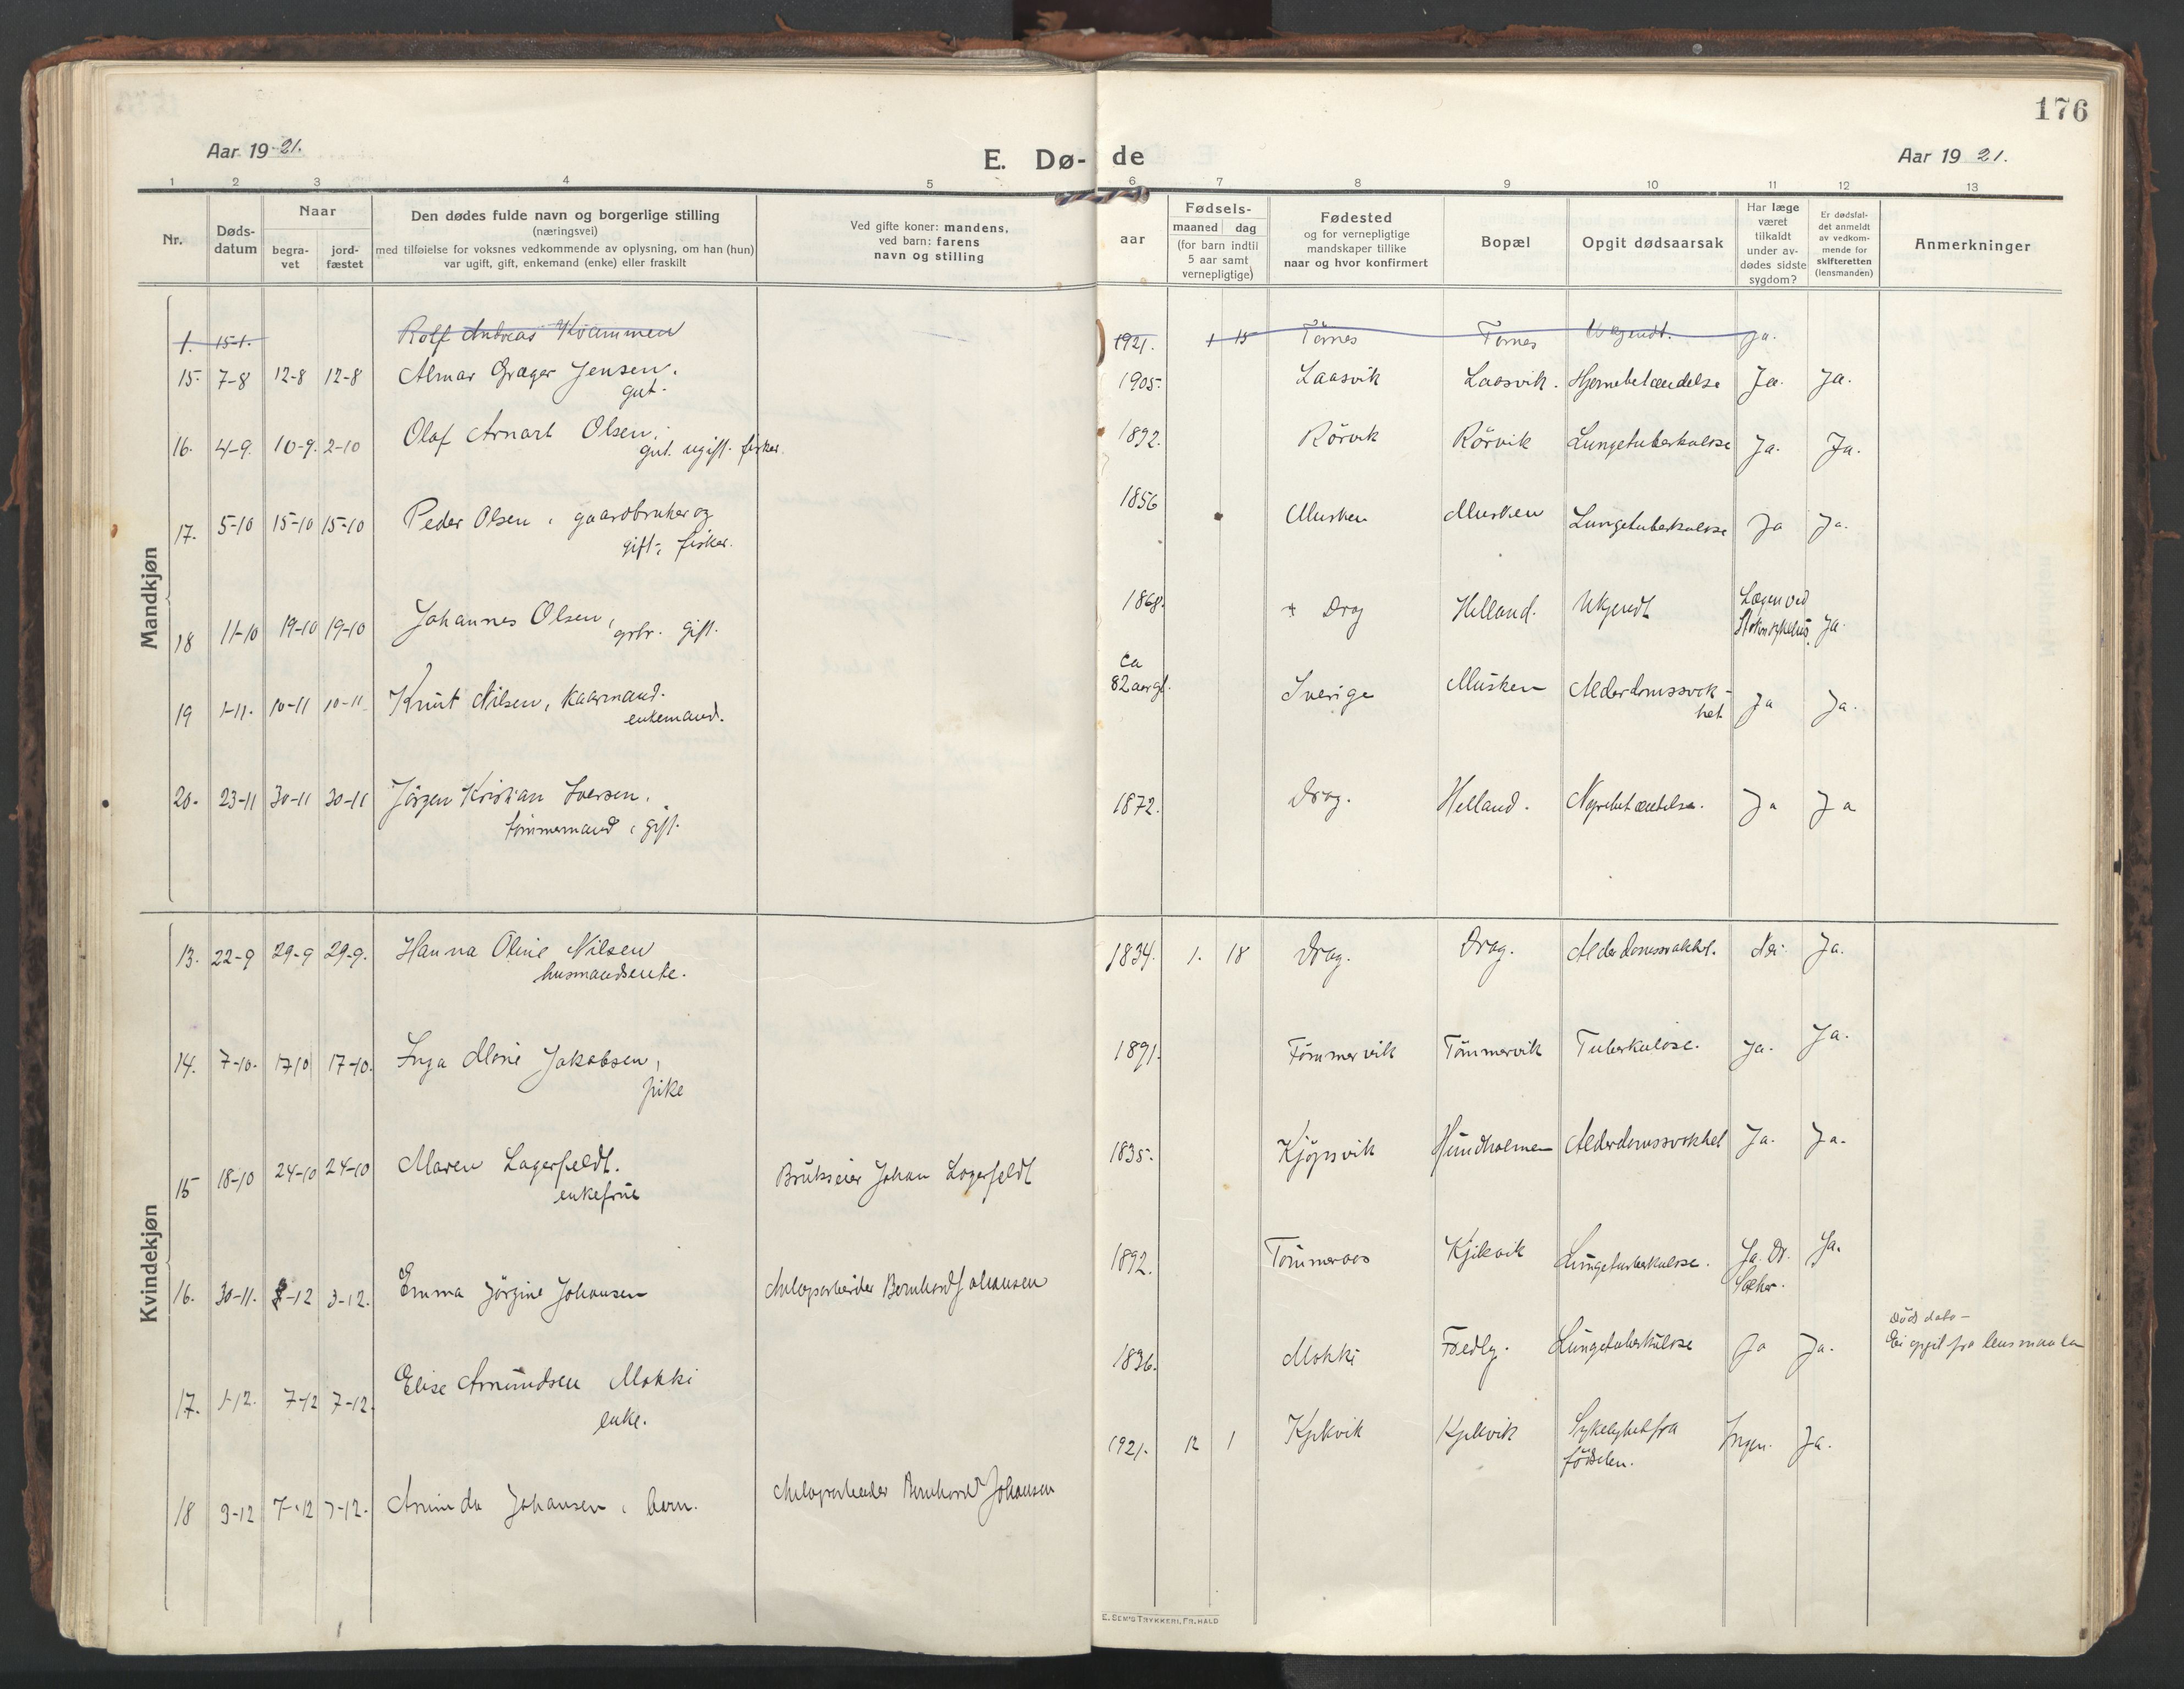 176
Aar 19 21.
E. Dø-
de
Aar 19 21.
1 2 3 4 5 6 7 8 9 10 11 12 13
Nr.
Døds-
datum
Naar
begra-
vet
jord-
fæstet
Den dødes fulde navn og borgerlige stilling
(næringsvei)
med tilføielse for voksnes vedkommende av oplysning, om han (hun)
var ugift, gift, enkemand (enke) eller fraskilt
Ved gifte koner: mandens,
ved barn: farens
navn og stilling
aar
Fødsels-
maaned dag
(for barn indtil
5 aar samt
vernepligtige)
Fødested
og for vernepligtige
mandskaper tillike
naar og hvor konfirmert
Bopæl
Opgit dødsaarsak
Har læge
været
tilkaldt
under av-
dødes sidste
sygdom?
Er dødsfal-
det anmeldt
av vedkom-
mende for
skifteretten
(lensmanden)
Anmerkninger
Mandkjøn
1. 15-1. Rolf Andreas Kvammen 1921. 1 15 Tørnes Tørnes Ukjendt. Ja.
15. 7-8 12-8 12-8 Almar Græger Jensen. 1905. Laasvik Laasvik. Hjernebetændelse Ja. Ja.
gut.
16. 4-9. 10-9. 2-10 Olaf Arnart Olsen, 1892. Rörvik Rörvik Lungetuberkulose Ja. Ja.
gut. ugift. fisker.
17. 5-10 15-10 15-10 Peder Olsen, gaardbruker og 1856 Musken Musken Lungetuberkulose Ja Ja.
gift, fisker.
18 11-10 19-10 19-10 Johannes Olsen, 1868. Drag Helland. Ukjendt Lægen ved
grbr. gift. Ja.
19 1-11. 10-11 10-11 Knut Nilsen, kaarmand. ca
82 aar gl. Sverige Musken Alderdomssvak-
enkemand. het Ja Ja.
20. 23-11 30-11 30-11 Jörgen Kristian Iversen. 1872. Drag. Helland. Nyrebetændelse. Ja Ja
tömmermand, gift.
Kvindekjøn
13. 22-9 29-9 29-9. Hanna Oline Nilsen 1834. 1. 18 Drag. Drag. Alderdomssvakhet. Nei. Ja.
husmandsenke.
14. 7-10. 17 10 17-10. Inga Marie Jakobsen, 1891. Tömmervik Tömmervik Tuberkulose. Ja. Ja.
pike
15 18-10 24-10 24-10 Maren Lagerfeldt. Brukseier Johan Lagerfeldt 1835. Kjöpsvik Hundholmen Alderdomssvakhet Ja. Ja.
enkefrue
16. 30-11. 3-12 3-12. Emma Jörgine Johansen Anlægsarbeider Bernhard Johansen 1892. Tömmeraas Kjelkvik Lungetuberkulose. Ja. Dr. Ja.
17. 1-12. 7-12 7-12. Elise Amundsen Mokki 1836. Mokki Ja Ja. Döds dato -
Ei opgit fra lensmanden
enke.
18 3-12 7-12 7-12. Arninda Johansen, barn. Anlægsarbeider Bernhard Johansen 1921. 12 1 Kjelkvik Kjelkvik Sykelighet fra
födselen. Ingen. Ja.
E. SEM'S TRYKKERI, FR.HALD